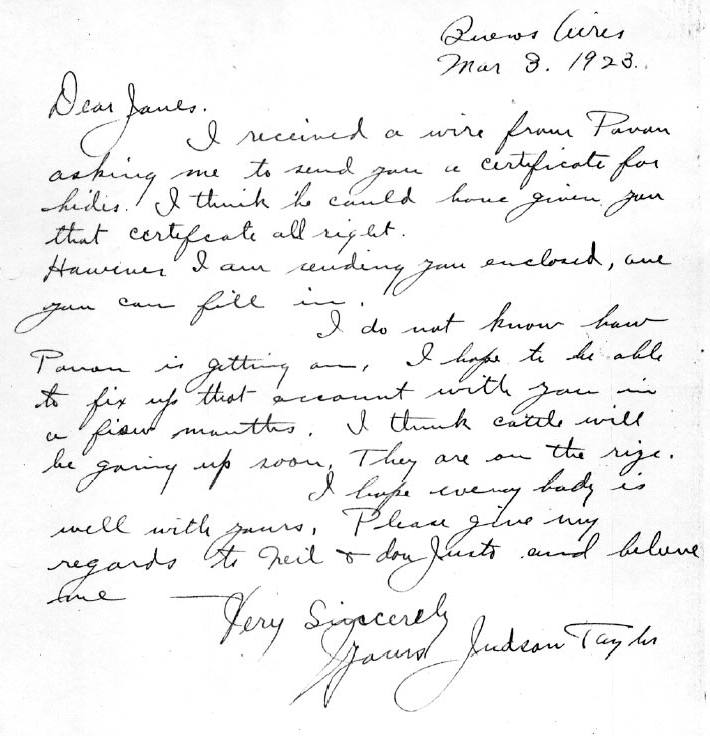 Buenos Aires
Mar 3. 1923.
Dear James.
I received a wire from Pavan
asking me to send you a certificate for
hides. I think he could have given you
that certifcate all right.
However I am sending you enclosed, one
you can fill in.
I do not know how
Pavan is getting on. I hope to be able
to fix up that account with you in
a few months. I think cattle will
be going up soon. They are on the rize.
I hope every body is
well with yours. Please give my
regards to Neil & don Justo and believe
me
Very Sincerely
Yours Judson Taylor